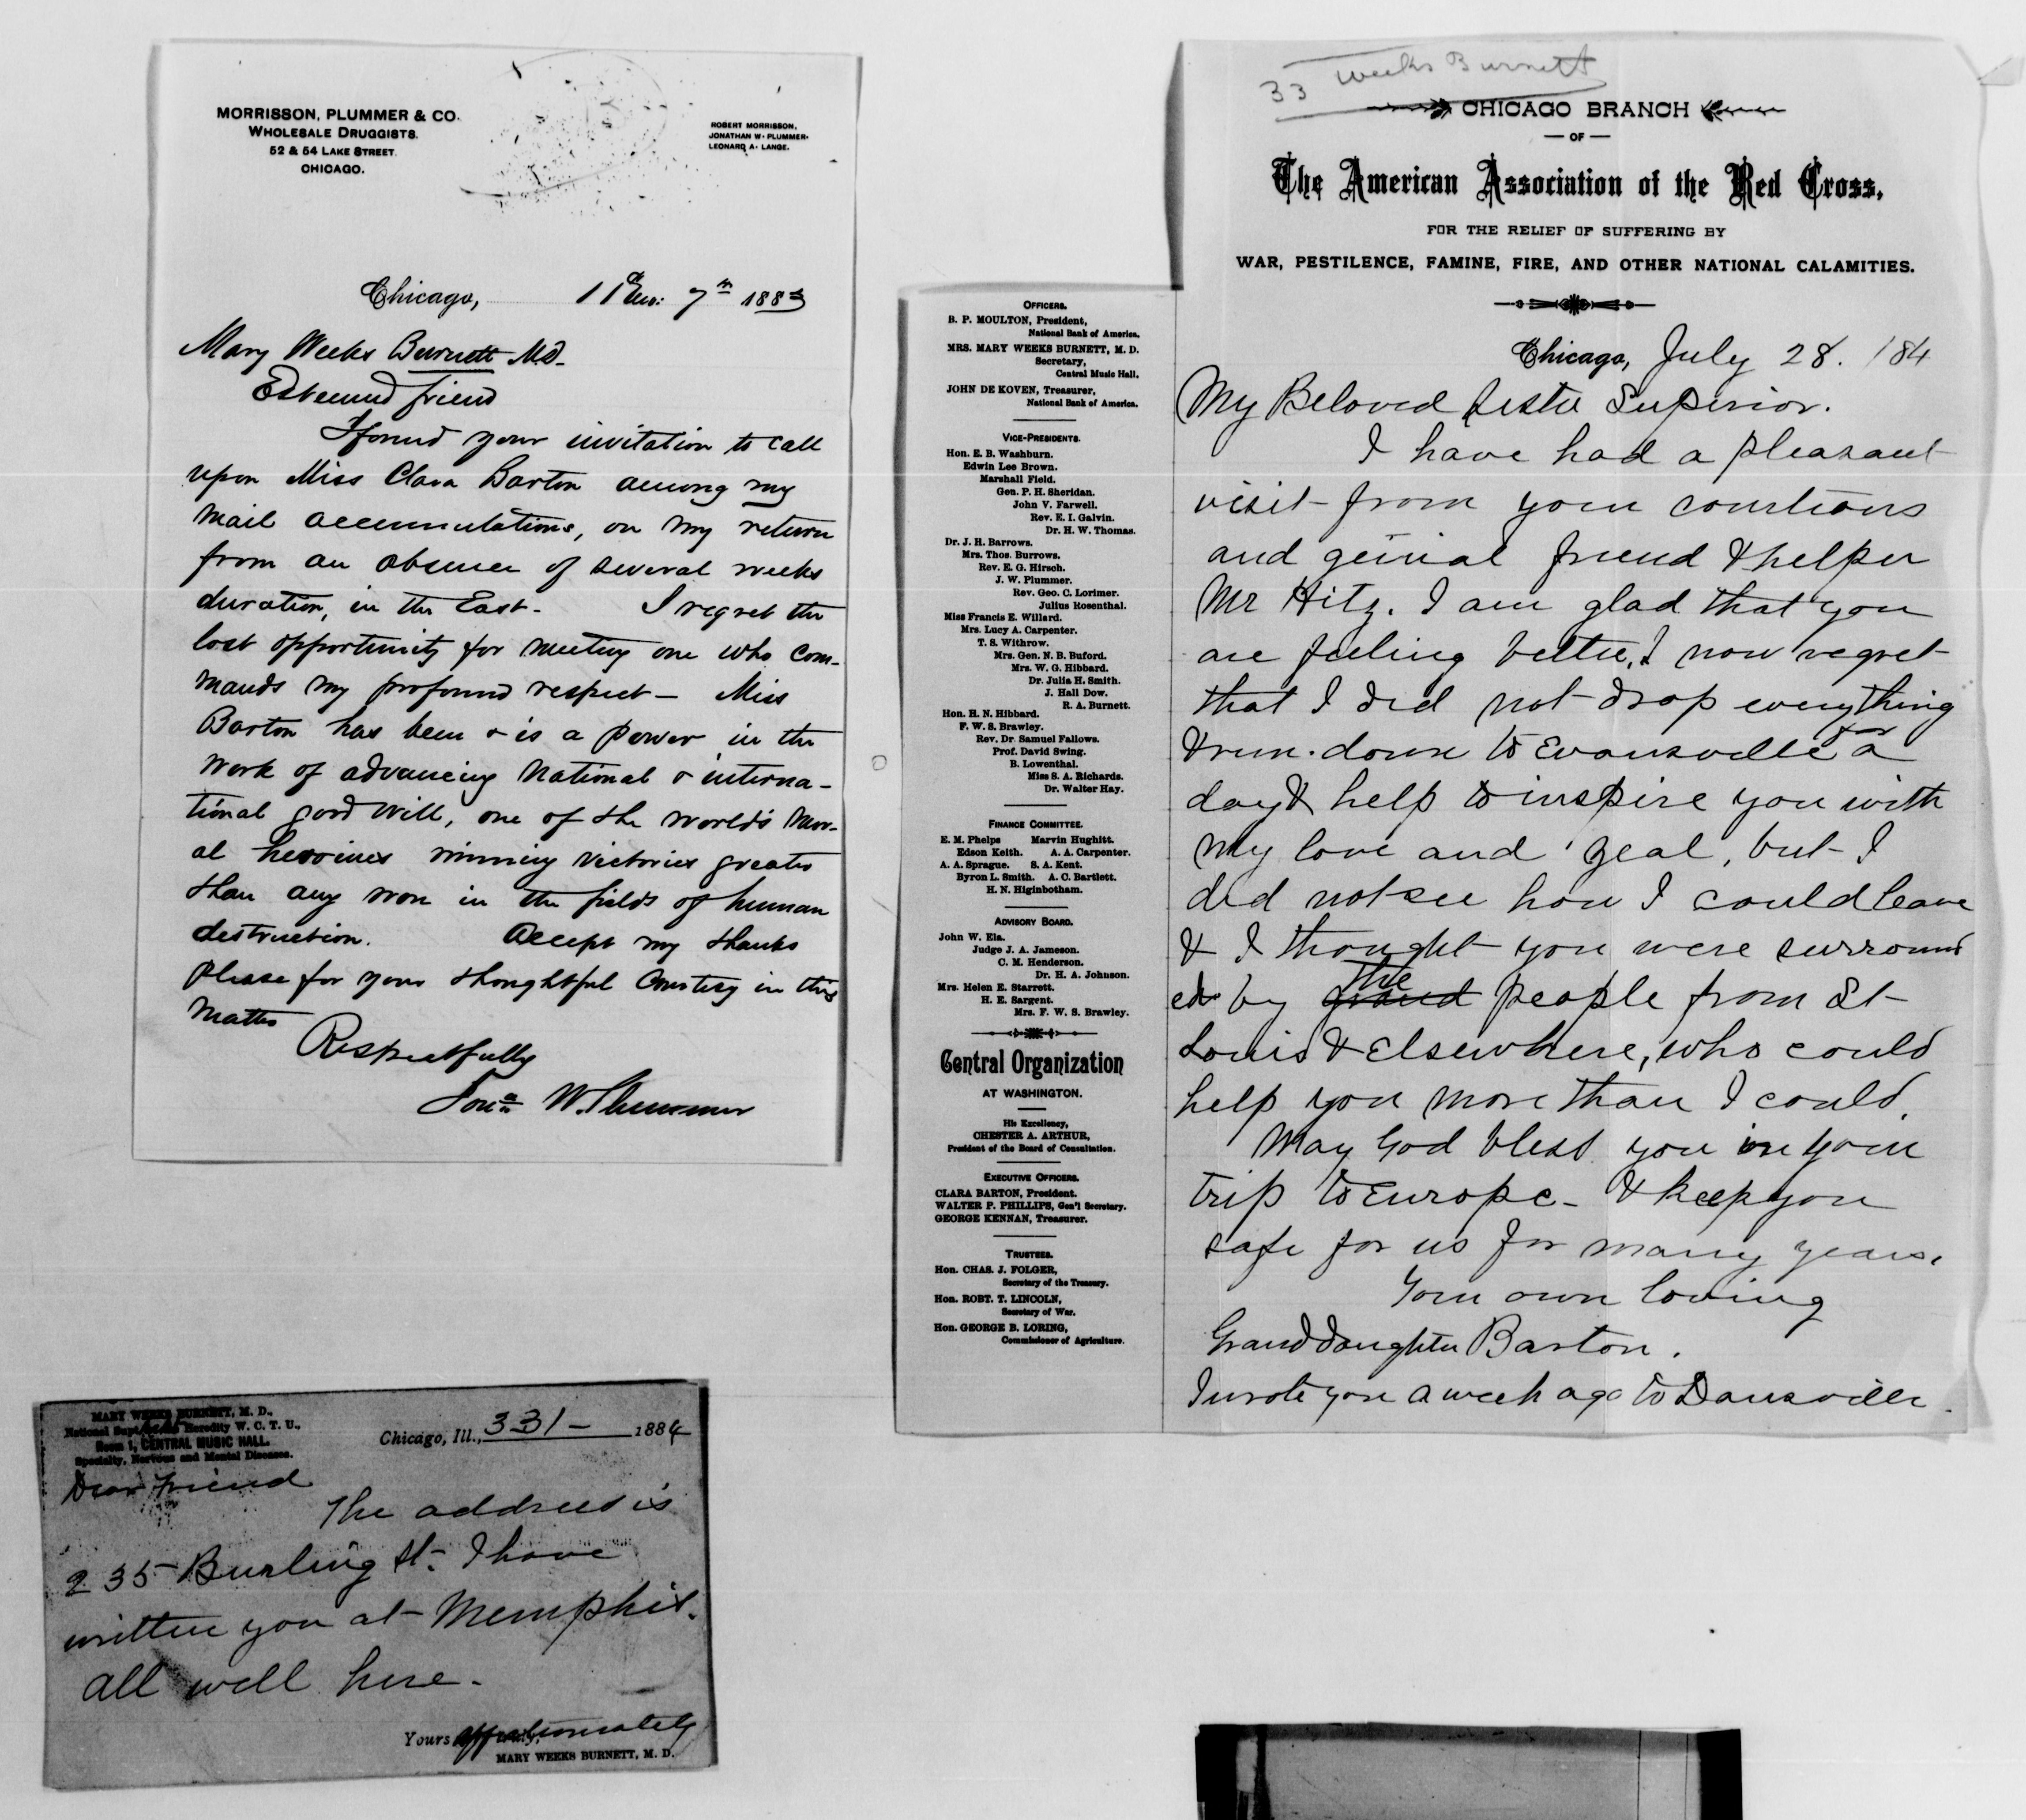 MORRISSON, PLUMMER & CO.
WHOLESALE DRUGGISTS.
52 & 54 LAKE STREET.
CHICAGO.
ROBERT MORRISSON,
JONATHAN W. PLUMMER.
LEONARD A. LANGE.
Chicago, 7th 1883
Mary Weeks Burnett M.D.
Esteemed friend
I found your invitation to call
upon Miss Clara Barton among my
mail accumulations, on my return
from an absence of several weeks
duration, in the East. I regret the
lost opportunity for meeting one who com-
mands my profound respect — Miss
Barton has been & is a power in the
work of advancing national & interna-
tional good will, one of the worlds mor-
al heroines winning victories greater
than any won in the fields of human
destruction. Accept my thanks
please for your thoughtful courtesy in this
matter
Respectfully
Jona W. Plummer
MARY WEEKS BURNETT, M. D.,
National Supt. Heredity W. C. T. U.,
Room 1, CENTRAL MUSIC HALL.
Specialty, Nervous and Mental Diseases.
Chicago, Ill., 331 — 1884
Dear Friend
The address is
235 Burling St. I have
written you at Memphis.
All well here.
Yours affectionately
MARY WEEKS BURNETT, M. D.
33 Weeks Burnett
CHICAGO BRANCH
— OF —
The American Association of the Red Cross,
FOR THE RELIEF OF SUFFERING BY
WAR, PESTILENCE, FAMINE, FIRE, AND OTHER NATIONAL CALAMITIES.
OFFICERS.
B. P. MOULTON, President,
National Bank of America.
MRS. MARY WEEKS BURNETT, M. D.
Secretary,
Central Music Hall.
JOHN DE KOVEN, Treasurer,
National Bank of America.
VICE-PRESIDENTS.
Hon. E. B. Washburn.
Edwin Lee Brown.
Marshall Field.
Gen. P. H. Sheridan.
John V. Farwell.
Rev. E. I. Galvin.
Dr. H. W. Thomas.
Dr. J. H. Barrows.
Mrs. Thos. Burrows.
Rev. E. G. Hirsch.
J. W. Plummer.
Rev. Geo. C. Lorimer.
Julius Rosenthal.
Miss Francis E. Willard.
Mrs. Lucy A. Carpenter.
T. S. Withrow.
Mrs. Gen. N. B. Buford.
Mrs. W. G. Hibbard.
Dr. Julia H. Smith.
J. Hall Dow.
R. A. Burnett.
Hon. H. N. Hibbard.
F. W. S. Brawley.
Rev. Dr. Samuel Fallows.
Prof. David Swing.
B. Lowenthal.
Miss S. A. Richards.
Dr. Walter Hay.
FINANCE COMMITTEE.
E. M. Phelps Marvin Hughitt.
Edson Keith. A. A. Carpenter.
A. A. Sprague. S. A. Kent.
Byron L. Smith. A. C. Bartlett.
H. N. Higinbotham.
ADVISORY BOARD.
John W. Ela.
Judge J. A. Jameson.
C. M. Henderson.
Dr. H. A. Johnson.
Mrs. Helen E. Starrett.
H. E. Sargent.
Mrs. F. W. S. Brawley.
Central Organization
AT WASHINGTON.
His Excellency,
CHESTER A. ARTHUR,
President of the Board of Consultation.
EXECUTIVE OFFICERS.
CLARA BARTON, President.
WALTER P. PHILLIPS, Gen'l Secretary.
GEORGE KENNAN, Treasurer.
TRUSTEES.
Hon. CHAS. J. FOLGER,
Secretary of the Treasury.
Hon. ROBT. T. LINCOLN,
Secretary of War.
Hon. GEORGE B. LORING,
Commissioner of Agriculture.
Chicago, July 28. 184
My Beloved Sister Superior.
I have had a pleasant
visit from your courteous
and genial friend & helper
Mr Hitz. I am glad that you
are feeling better, I now regret
that I did not drop everything
& run down to Evansville for a
day & help to inspire you with
my love and zeal, but I
did not see how I could leave
& I thought you were surround
ed by grand the people from St
Louis & Elsewhere, who could
help you more than I could.
May God bless you in your
trip to Europe — & keep you
safe for us for many years.
Your own loving
Granddaughter Barton.
I wrote you a week ago to Dansville.